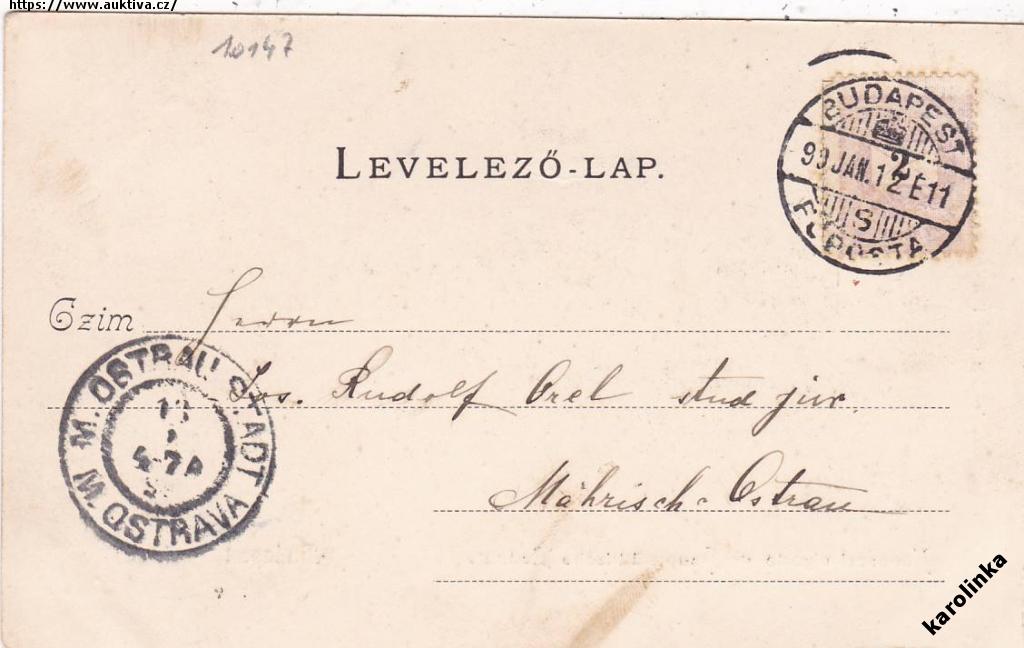 https://www.auktiva.cz/
10147
LEVELEZŐ-LAP.
BUDAPEST
2
99 JAN. 12 É 11
S
FŐPOSTA
Czim
Herrn
Jos. Rudolf Orel stud jur.
Mährisch-Ostrau
M. OSTRAU STADT
13
M. OSTRAVA
karolinka